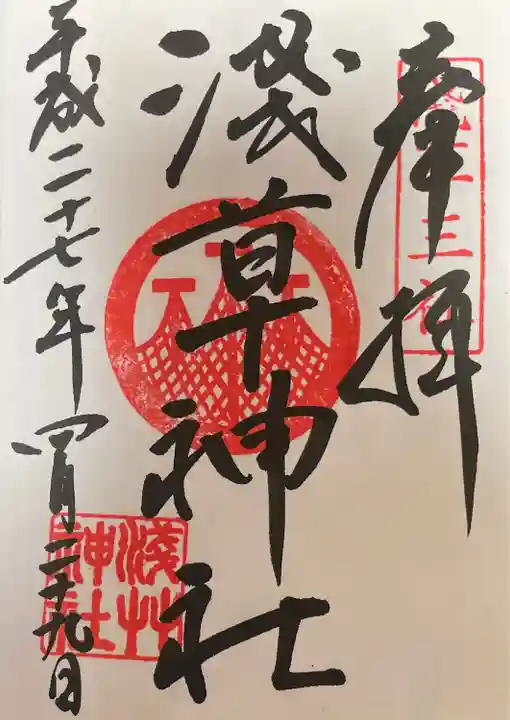 奉拝
三社
浅草神社
淺艸
神社
平成二十七年四月二十九日